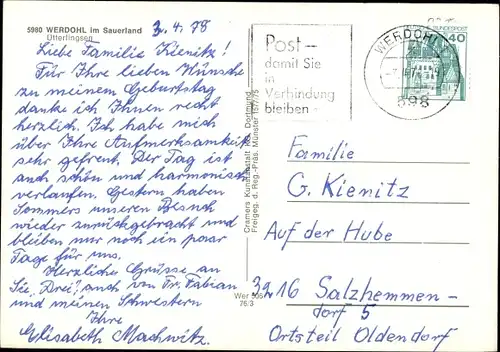 5980 WERDOHL im Sauerland
Ütterlingsen
2.4.78
Liebe Familie Kienitz!
Für Ihre lieben Wünsche
zu meinem Geburtstag
danke ich Ihnen recht
herzlich. Ich habe mich
über Ihre Aufmerksamkeit
sehr gefreut. Der Tag ist
auch schön und harmonisch
verlaufen. Gestern haben
Sommers unseren Besuch
wieder zurückgebracht und
bleiben nur noch ein paar
Tage für uns.
Herzliche Grüsse an
Sie Drei, auch von Fr. Fabian
und meinen Schwestern
Ihre
Elisabeth Machwitz.
Cramers Kunstanstalt KG, Dortmund
Freigeg. d. Reg.-Präs. Münster
Wer 506
76/3
Post –
damit Sie
in
Verbindung
bleiben
WERDOHL
598
BUNDESPOST
40
Familie
G. Kienitz
Auf der Hube
3216 Salzhemmen-
dorf 5
Ortsteil Oldendorf